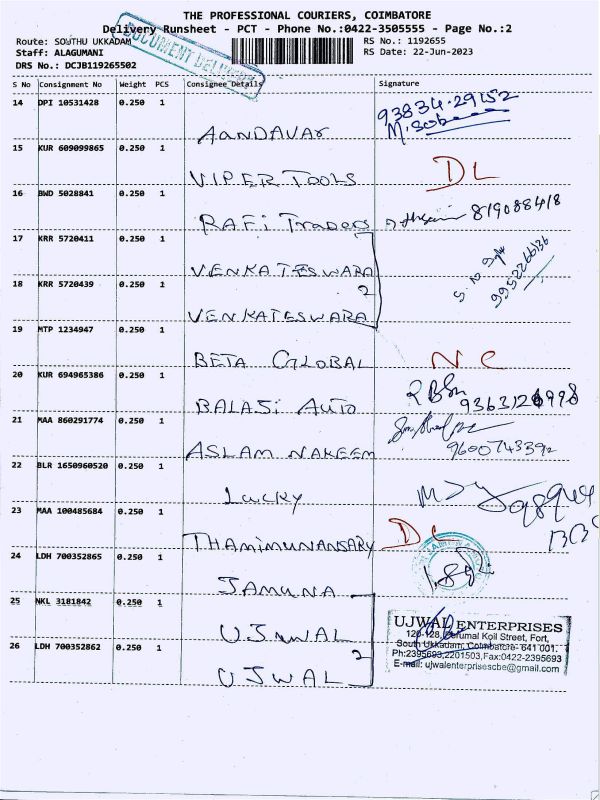 THE PROFESSIONAL COURIERS, COIMBATORE
Delivery Runsheet - PCT - Phone No.:0422-3505555 - Page No.:2
Route: SOUTHU UKKADAM RS No.: 1192655
Staff: ALAGUMANI RS Date: 22-Jun-2023
DRS No.: DCJB119265502
DOCUMENT
S No Consignment No Weight PCS Consignee Details Signature
14 DPI 10531428 0.250 1
AANDAVAR 93834.29152
15 KUR 609099865 0.250 1
VIPER TOOLS DL
16 BWD 5028841 0.250 1
RAFI Traders 819088418
17 KRR 5720411 0.250 1
VENKATESWARA 9952266136
18 KRR 5720439 0.250 1 2
VENKATESWARA
19 MTP 1234947 0.250 1
BETA GLOBAL NC
20 KUR 694965386 0.250 1
BALAJI AUTO
21 MAA 860291774 0.250 1
ASLAM NAKEEM 9600743392
22 BLR 1650960520 0.250 1
LUCKY
23 MAA 100485684 0.250 1
THAMIMUNANSARY DL
24 LDH 700352865 0.250 1
JAMUNA
25 NKL 3181842 0.250 1
UJWAL
26 LDH 700352862 0.250 1 2
UJWAL
UJWAL ENTERPRISES
126-128, Perumal Koil Street, Fort,
South Ukkadam, Coimbatore- 641 001.
Ph:2395693,2201503,Fax:0422-2395693
E-mail: ujwalenterprisescbe@gmail.com